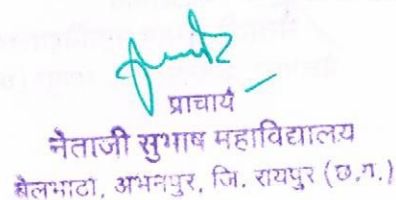 प्राचार्य
नेताजी सुभाष महाविद्यालय
बेलभाटा, अभनपुर, जि. रायपुर (छ.ग.)